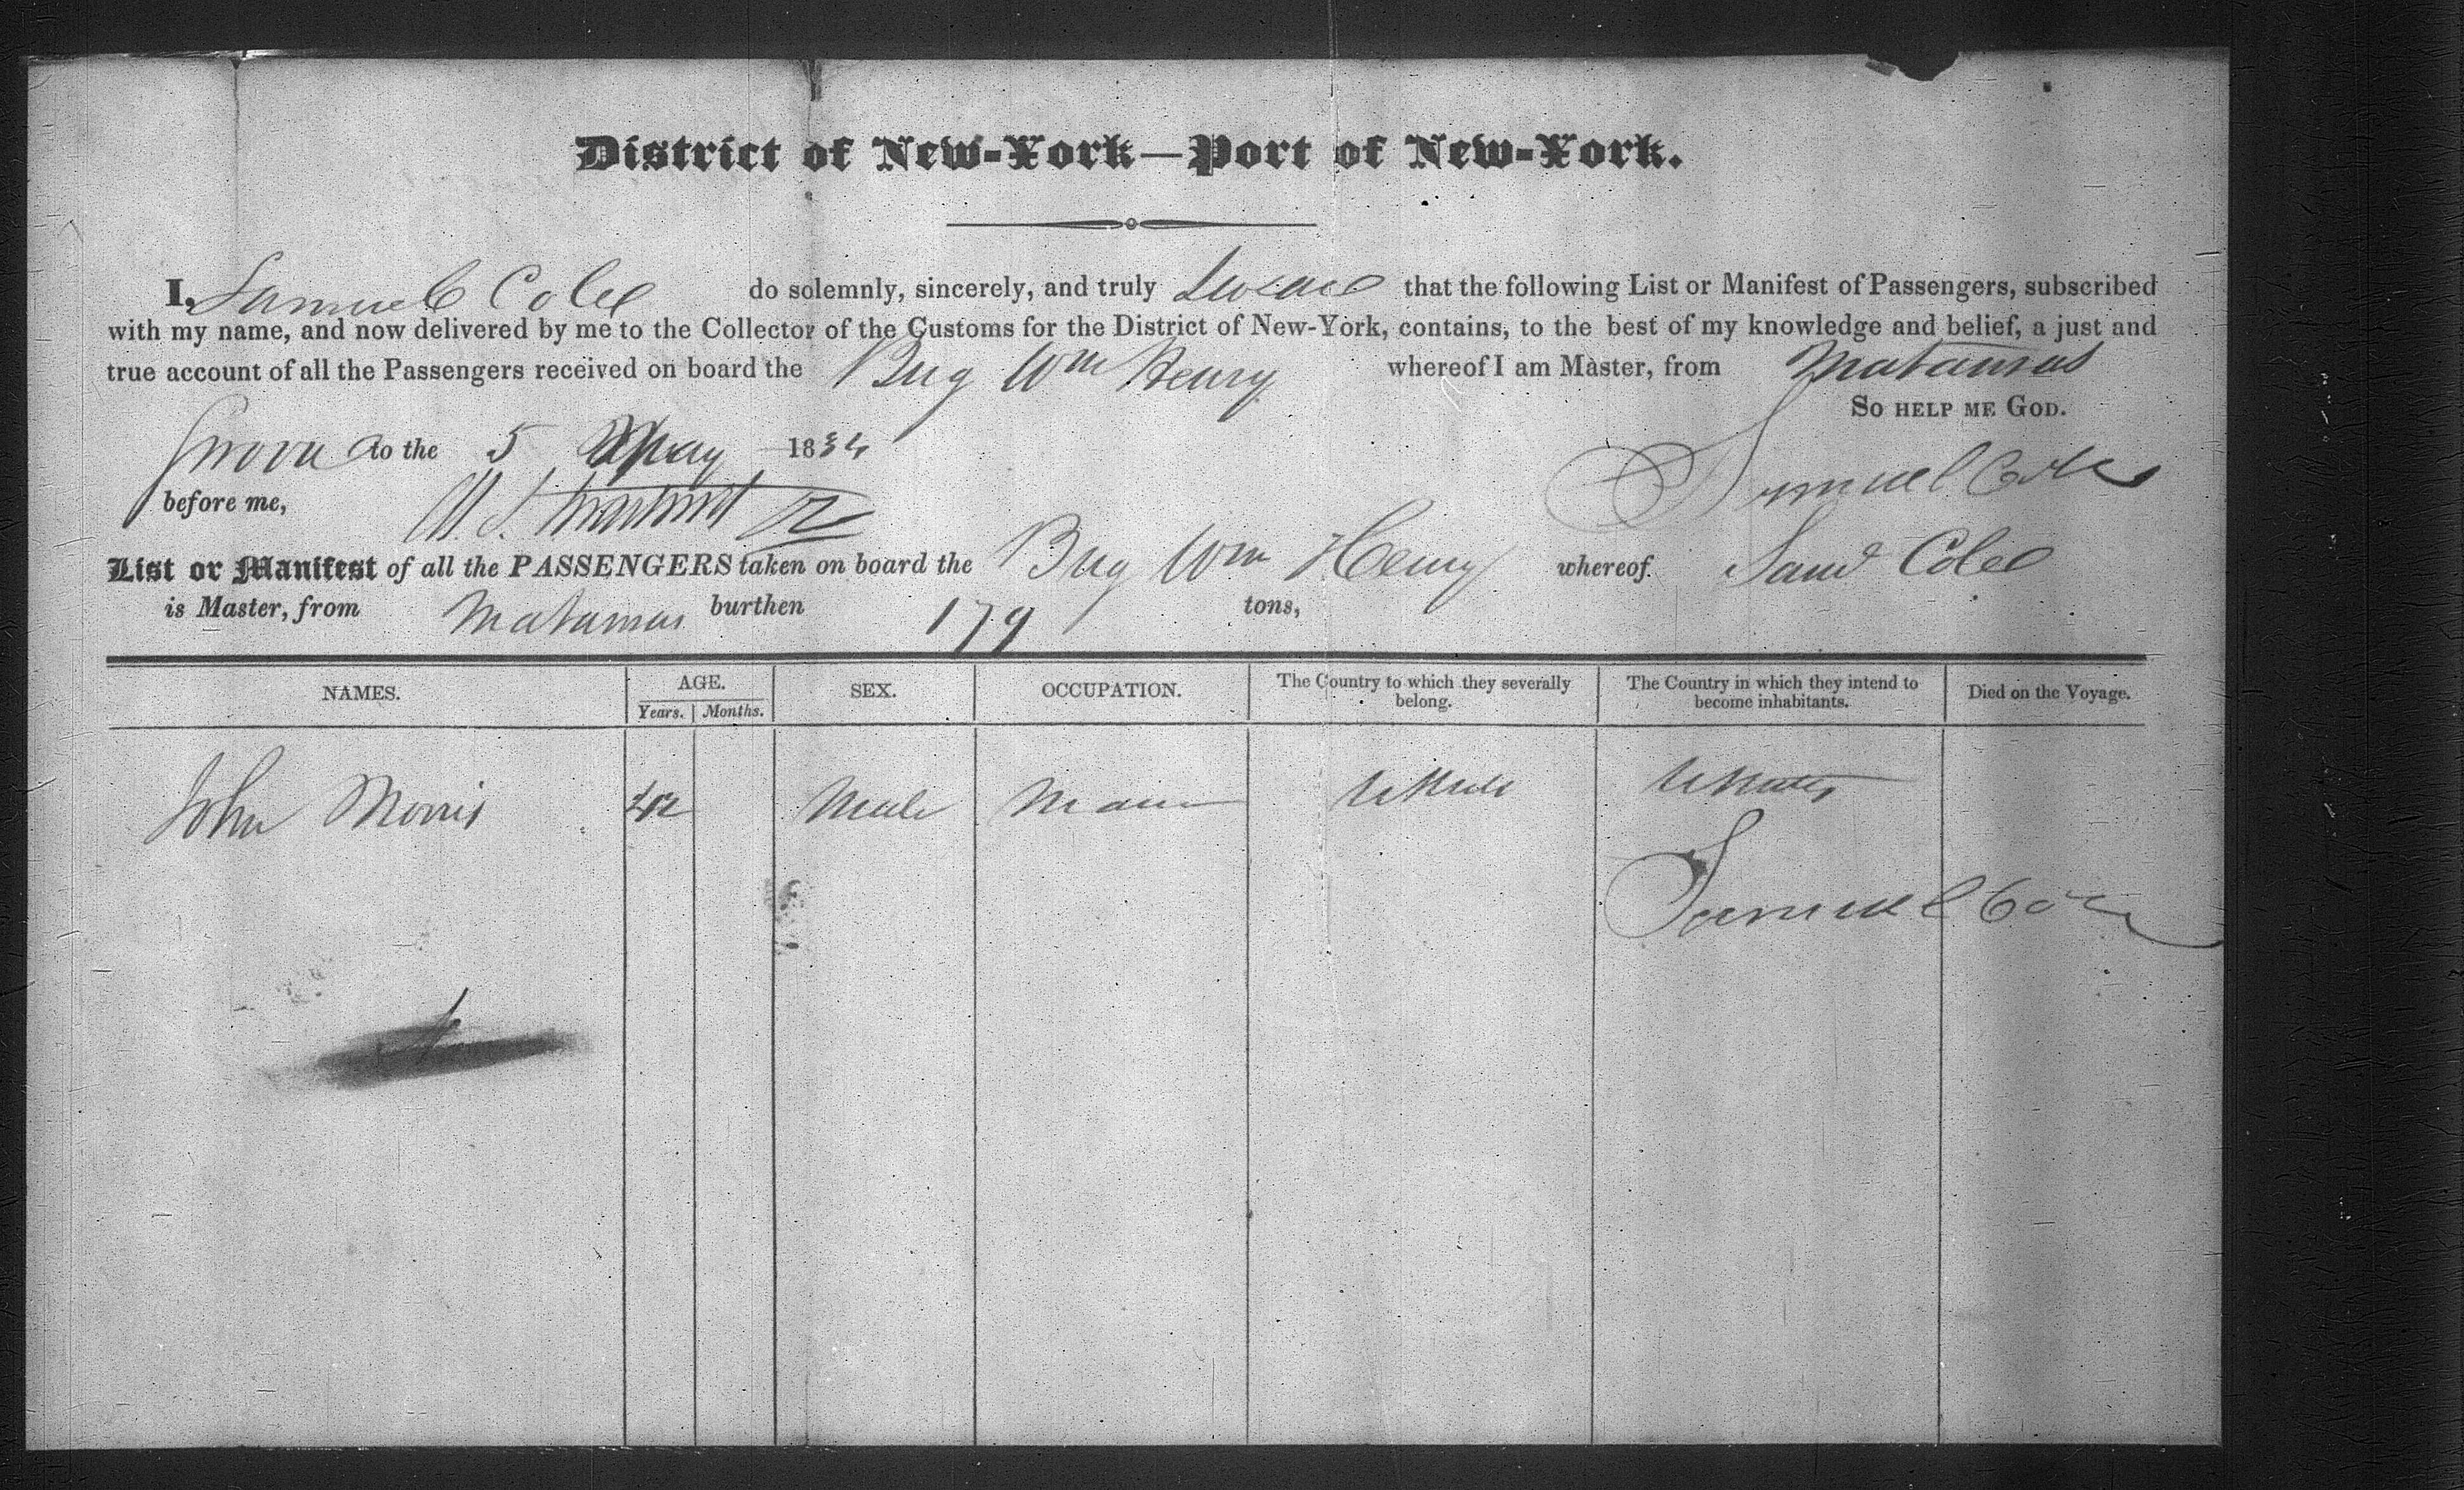 District of New-York—Port of New-York.
I, Samuel Cole do solemnly, sincerely, and truly Swear that the following List or Manifest of Passengers, subscribed
with my name, and now delivered by me to the Collector of the Customs for the District of New-York, contains, to the best of my knowledge and belief, a just and
true account of all the Passengers received on board the Brig Wm Henry whereof I am Master, from Matamas
So help me God.
Sworn to the 5 May 1834
Samuel Cole
before me,
List or Manifest of all the PASSENGERS taken on board the Brig Wm Henry whereof Saml Cole
is Master, from Matamas burthen 179 tons,
NAMES. AGE. SEX. OCCUPATION. The Country to which they severally belong. The Country in which they intend to become inhabitants. Died on the Voyage.
Years. Months.
John Morris 42 Male
Samuel Cole